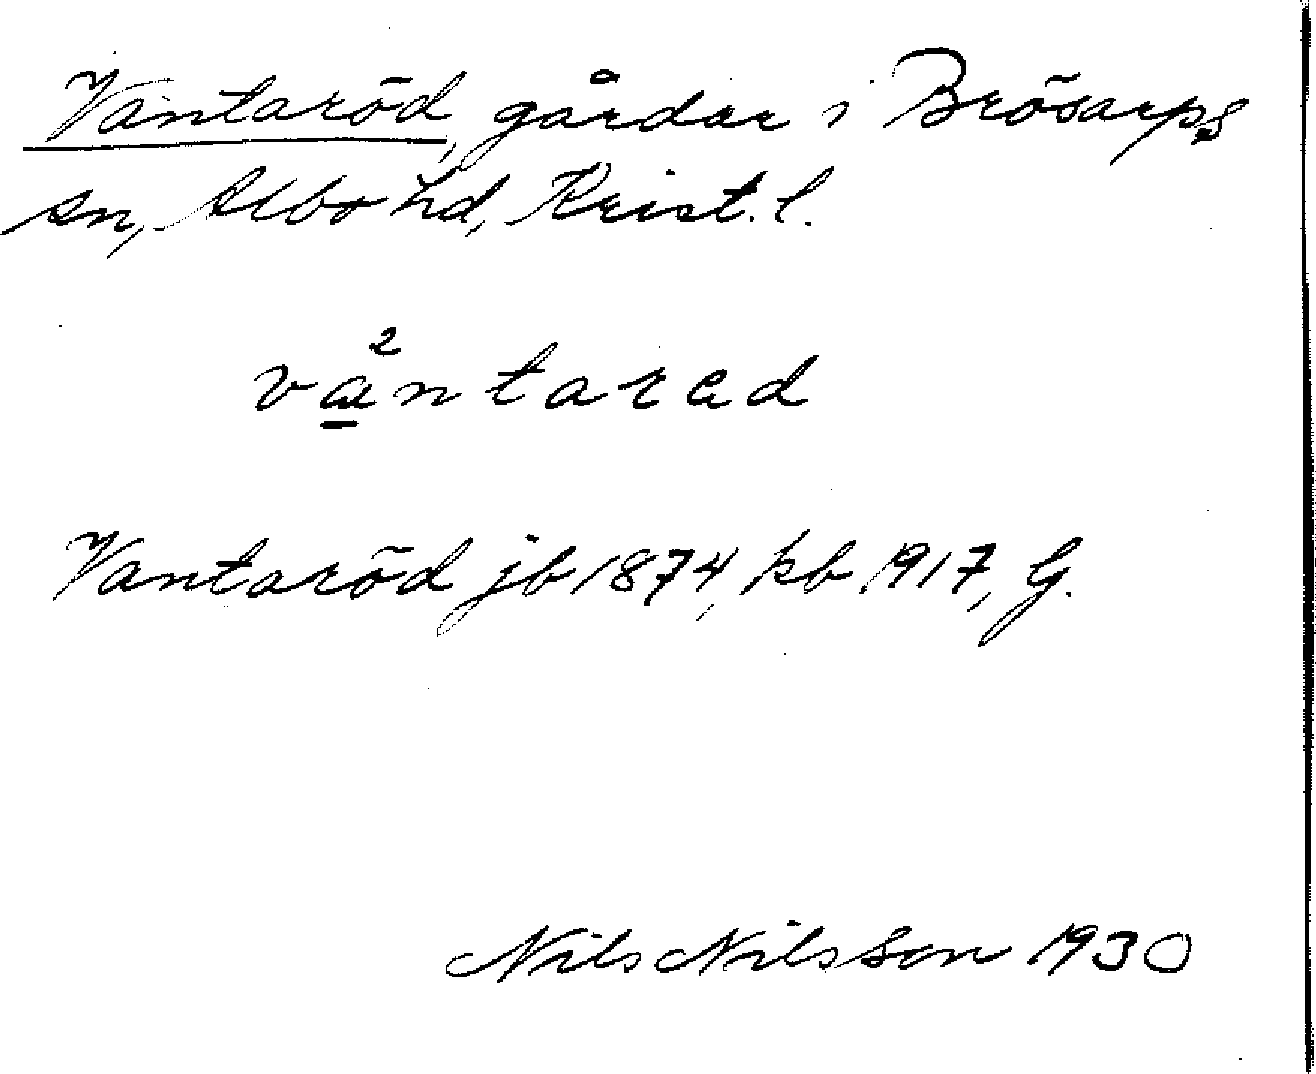 Vantaröd, gårdar i Brösarps
sn, Albo hd, Krist. l.
va̲²ntarad
Vantaröd jb 1874, kb 1917, G.
Nils Nilsson 1930